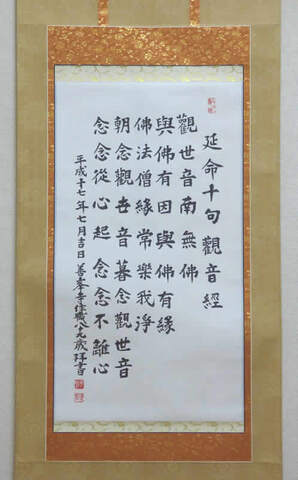 延命十句觀音經
觀世音南無佛
與佛有因與佛有緣
佛法僧緣常樂我淨
朝念觀世音暮念觀世音
念念從心起 念念不離心
平成十七年七月吉日 善峯寺住職八九歳拜書